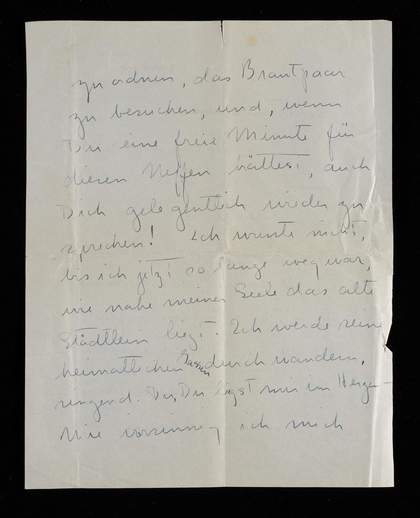 zu ordnen, das Brautpaar
zu besuchen, und, wenn
Du eine freie Minute für
diesen Neffen hättest, auch
Dich gelegentlich wieder zu
sprechen! Ich wusste nicht,
bis ich jetzt so lange weg war,
wie nahe meiner Seele das alte
Städtlein liegt. Ich werde seine
heimatlichen Gassen durchwandern,
singend: Du, Du liegst mir im Herzen –
Wie ich mich